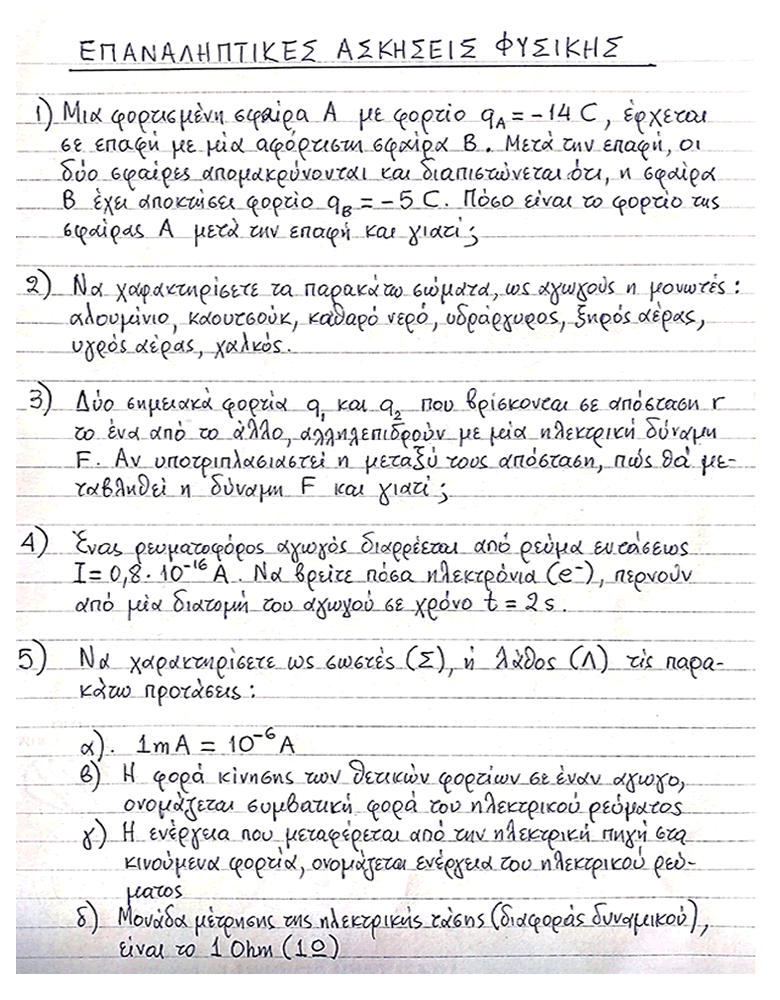 ΕΠΑΝΑΛΗΠΤΙΚΕΣ ΑΣΚΗΣΕΙΣ ΦΥΣΙΚΗΣ
1) Μια φορτισμένη σφαίρα Α με φορτίο q_A = -14 C, έρχεται
σε επαφή με μία αφόρτιστη σφαίρα Β. Μετά την επαφή, οι
δύο σφαίρες απομακρύνονται και διαπιστώνεται ότι, η σφαίρα
Β έχει αποκτήσει φορτίο q_B = -5 C. Πόσο είναι το φορτίο της
σφαίρας Α μετά την επαφή και γιατί;
2) Να χαρακτηρίσετε τα παρακάτω σώματα, ως αγωγούς η μονωτές:
αλουμίνιο, καουτσούκ, καθαρό νερό, υδράργυρος, ξηρός αέρας,
υγρός αέρας, χαλκός.
3) Δύο σημειακά φορτία q₁ και q₂ που βρίσκονται σε απόσταση r
το ένα από το άλλο, αλληλεπιδρούν με μία ηλεκτρική δύναμη
F. Αν υποτριπλασιαστεί η μεταξύ τους απόσταση, πώς θά με-
ταβληθεί η δύναμη F και γιατί;
4) Ένας ρευματοφόρος αγωγός διαρρέεται από ρεύμα εντάσεως
I = 0,8·10⁻¹⁶ A. Να βρείτε πόσα ηλεκτρόνια (e⁻), περνούν
από μία διατομή του αγωγού σε χρόνο t = 2s.
5) Να χαρακτηρίσετε ως σωστές (Σ), ή λάθος (Λ) τίς παρα-
κάτω προτάσεις:
α). 1mA = 10⁻⁶ A
β) Η φορά κίνησης των θετικών φορτίων σε έναν αγωγο,
ονομάζεται συμβατική φορά του ηλεκτρικού ρεύματος
γ) Η ενέργεια που μεταφέρεται από την ηλεκτρική πηγή στα
κινούμενα φορτία, ονομάζεται ενέργεια του ηλεκτρικού ρεύ-
ματος
δ) Μονάδα μέτρησης της ηλεκτρικής τάσης (διαφοράς δυναμικού),
είναι το 1 Ohm (1Ω)